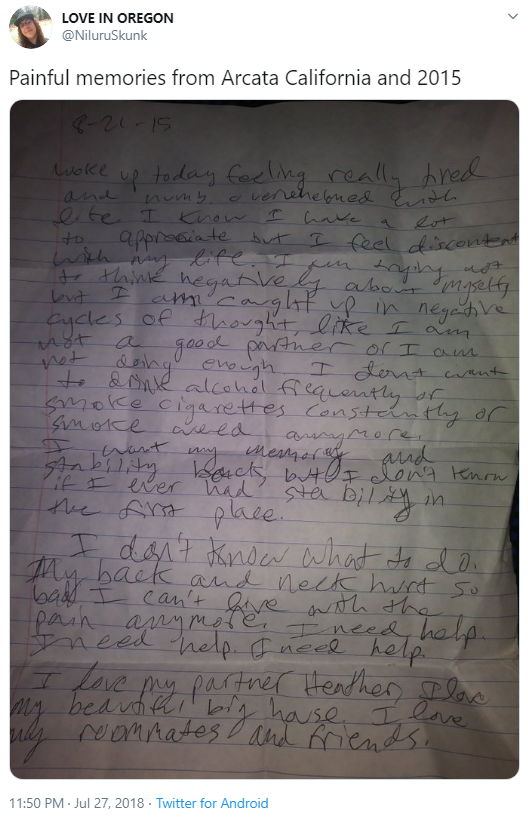 LOVE IN OREGON
@NiluruSkunk
Painful memories from Arcata California and 2015
8-21-15
woke up today feeling really tired
and numb. overwhelmed with
life. I know I have a lot
to appreciate but I feel discontent
with my life. I am trying not
to think negatively about myself,
but I am caught up in negative
cycles of thought, like I am
not a good partner or I am
not doing enough. I dont want
to drink alcohol frequently or
smoke cigarettes constantly or
smoke weed anymore.
I want my memory and
stability back, but I don't know
if I ever had stability in
the first place.
I don't know what to do.
My back and neck hurt so
bad I can't live with the
pain anymore. I need help.
I need help. I need help.
I love my partner Heather, I love
my beautiful big house. I love
my roommates and friends.
11:50 PM · Jul 27, 2018 · Twitter for Android